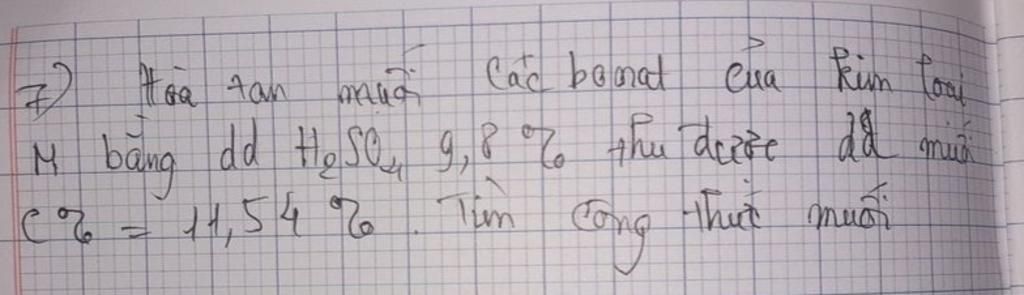 7) Hoà tan muối Các bonat của kim loại
M bằng dd H₂SO₄ 9,8 % thu được dd muối
C% = 11,54 % . Tìm công thức muối